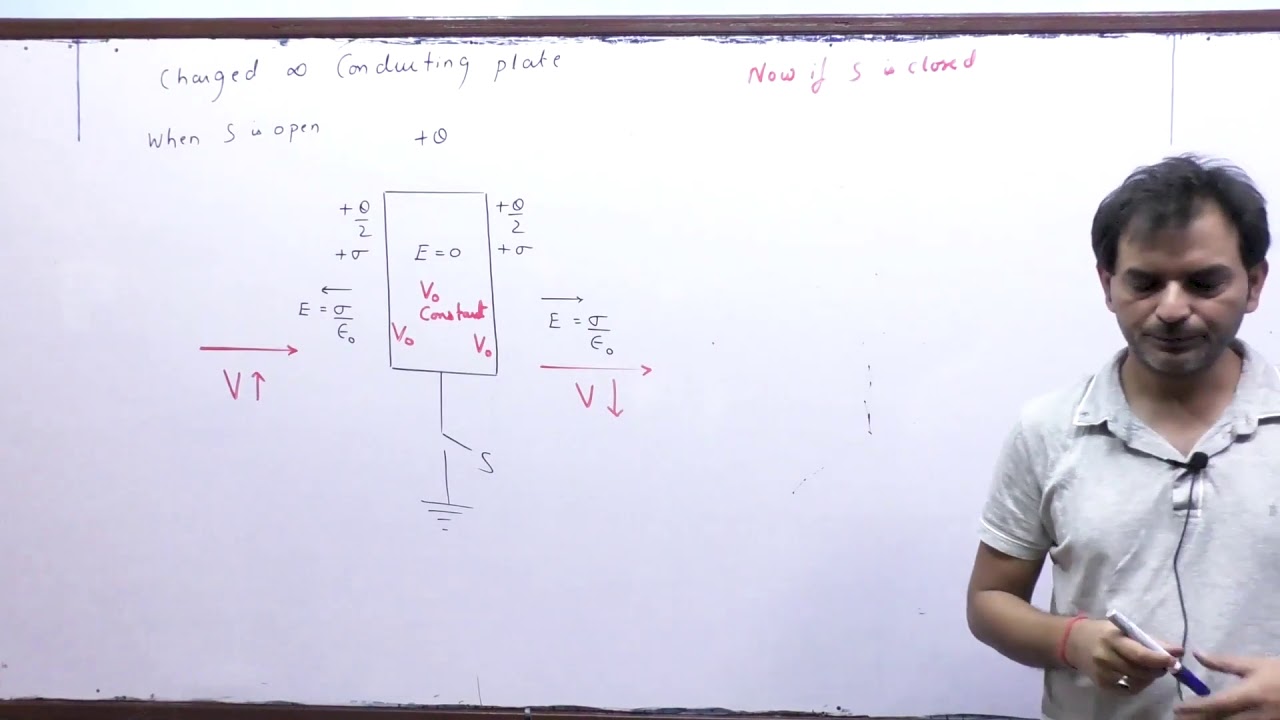 Charged ∞ Conducting plate
Now if S is closed
When S is open
+Q
+Q/2
+σ
E = 0
+Q/2
+σ
V₀
Constant
E = σ/ϵ₀
V₀
V₀
E = σ/ϵ₀
V↑
V↓
S